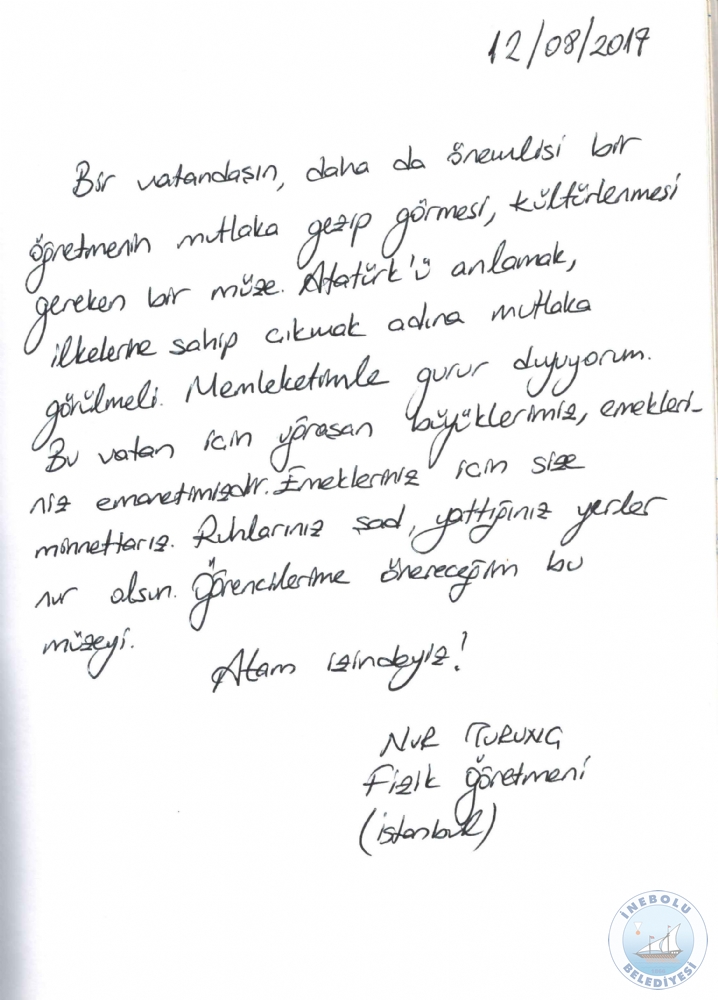 12/08/2017
Bir vatandaşın, daha da önemlisi bir
öğretmenin mutlaka gezip görmesi, kültürlenmesi
gereken bir müze. Atatürk'ü anlamak,
ilkelerine sahip çıkmak adına mutlaka
görülmeli. Memleketimle gurur duyuyorum.
Bu vatan için yaraşan büyüklerimiz, emekleri-
niz emanetimizdir. Emekleriniz için size
minnettarız. Ruhlarınız şad, yattığınız yerler
nur olsun. Öğrencilerime önereceğim bu
müzeyi.
Atam izindeyiz!
NUR TURUNÇ
Fizik Öğretmeni
(İstanbul)
İNEBOLU
BELEDİYESİ